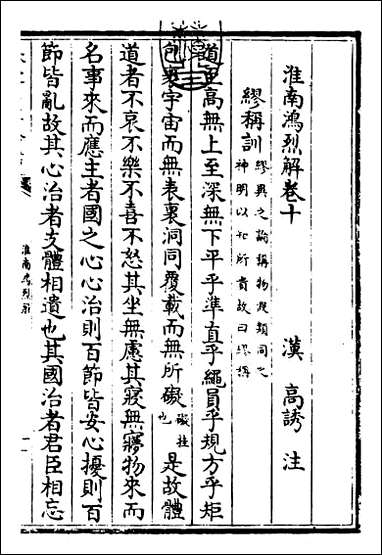 淮南鴻烈解卷十
漢 高誘 注
繆稱訓繆異之論稱物假類同之神明以知所貴故曰繆稱
道至高無上至深無下平乎準直乎繩員乎規方乎矩
包裹宇宙而無表裏洞同覆載而無所礙礙挂也是故體
道者不哀不樂不喜不怒其坐無慮其寢無夢物來而
名事來而應主者國之心心治則百節皆安心擾則百
節皆亂故其心治者支體相遺也其國治者君臣相忘
淮南鴻烈解
一